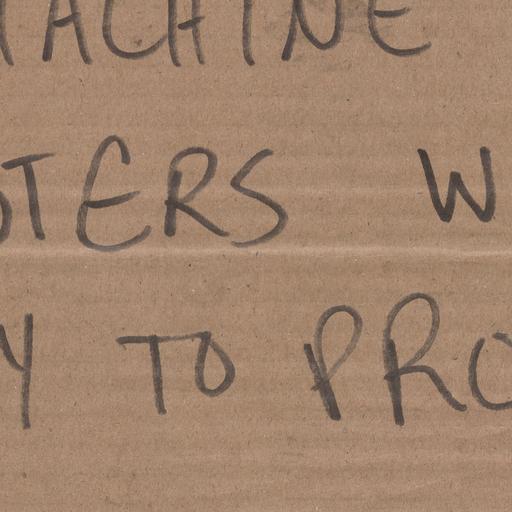 MACHINE
TERS W
Y TO PRO